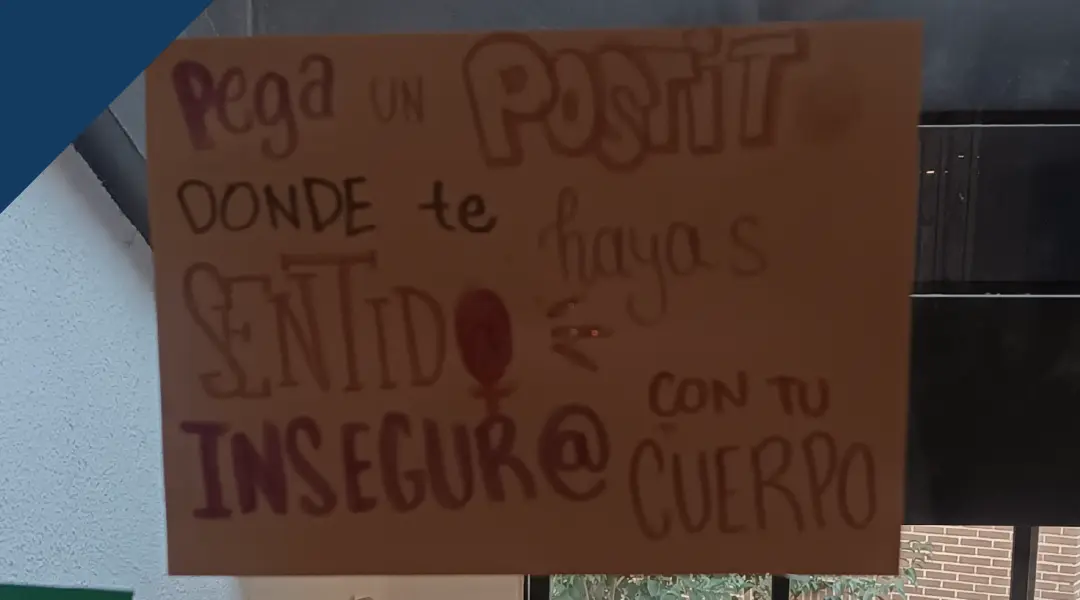 Pega UN POSTIT
DONDE te hayas
SENTIDO
INSEGUR@ CON TU
CUERPO